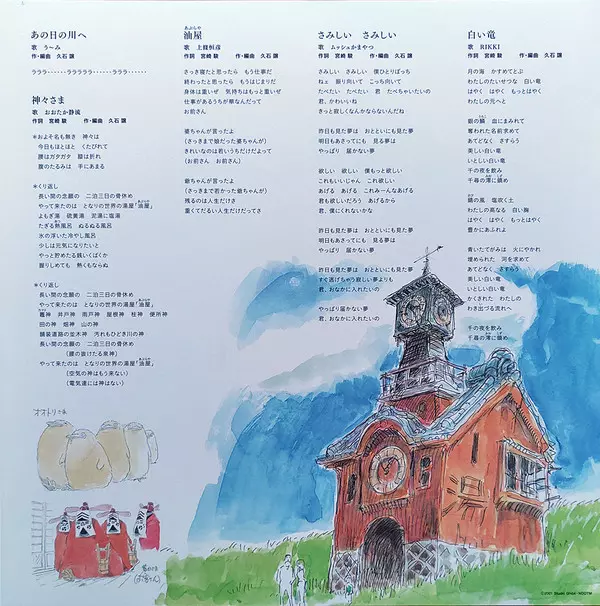 あの日の川へ
歌 う〜み
作・編曲 久石 譲
ラララ・・・・・・ラララララ・・・・・・ラララ・・・・・・
神々さま
歌 おおたか静流
作詞 宮崎 駿 作・編曲 久石 譲
*およそ名も無き 神々は
今日もほとほと くたびれて
腰はガタガタ 膝は折れ
腹のたるみは 手にあまる
*くり返し
長い間の念願の 二泊三日の骨休め
やって来たのは となりの世界の湯屋「油屋」
よもぎ湯 硫黄湯 泥湯に塩湯
たぎる熱風呂 ぬるぬる風呂
水の浮いた冷やし風呂
少しは元気になりたいと
やっと貯めた銭いくばくか
握りしめても 熱くもならぬ
*くり返し
長い間の念願の 二泊三日の骨休め
やって来たのは となりの世界の湯屋「油屋」
竈神 井戸神 雨戸神 屋根神 柱神 便所神
田の神 畑神 山の神
舗装道路の並木神 汚れもひどき川の神
長い間の念願の 二泊三日の骨休め
(腰の抜けてる泉神)
やって来たのは となりの世界の湯屋「油屋」
(空気の神はもう来ない)
(電気達には神はない)
油屋
あぶらや
歌 上條恒彦
作詞 宮崎 駿 作・編曲 久石 譲
さっき寝たと思ったら もう仕事だ
終わったと思ったら もうはじまりだ
身体は重いぜ 気持ちはもっと重いぜ
仕事があるうちが華なんだって
お前さん
婆ちゃんが言ったよ
(さっきまで娘だった婆ちゃんが)
きれいなのは若いうちだけだよって
(お前さん お前さん)
爺ちゃんが言ったよ
(さっきまで若かった爺ちゃんが)
残るのは人生だけさ
重くてだるい人生だけだってさ
さみしい さみしい
歌 ムッシュかまやつ
作詞 宮崎 駿 作・編曲 久石 譲
さみしい さみしい 僕ひとりぼっち
ねェ 振り向いて こっち向いて
たべたい たべたい 君 たべちゃいたいの
君、かわいいね
きっと寂しくなんかならないんだね
昨日も見た夢は おとといにも見た夢
明日もあさってにも 見る夢は
やっぱり 届かない夢
欲しい 欲しい 僕もっと欲しい
これもいいじゃん これ欲しい
あげる あげる これみ〜んなあげる
君も欲しいだろう あげるから
君、僕にくれないかな
昨日も見た夢は おとといにも見た夢
明日もあさってにも 見る夢は
やっぱり 届かない夢
昨日も見た夢は おとといにも見た夢
すぐ逃げちゃう寂しい夢よりも
君、おなかに入れたいの
やっぱり届かない夢
君、おなかに入れたいの
白い竜
歌 RIKKI
作詞 宮崎 駿 作・編曲 久石 譲
月の海 かすめてとぶ
わたしのたいせつな 白い竜
はやく はやく もっとはやく
わたしの元へと
銀の鱗 血にまみれて
奪われた名前求めて
あてどなく さすらう
美しい白い竜
いとしい白い竜
千の夜を飲み
千尋の淵に鎮め
鏡の風 塩吹く土
わたしの高なる 白い胸
はやく はやく もっとはやく
豊かにあふれよ
青いたてがみは 火にやかれ
埋められた 河を求めて
あてどなく さすらう
美しい白い竜
いとしい白い竜
かくされた わたしの
わき出づる流れ
千の夜を飲み
千尋の淵に鎮め
オオトリさま